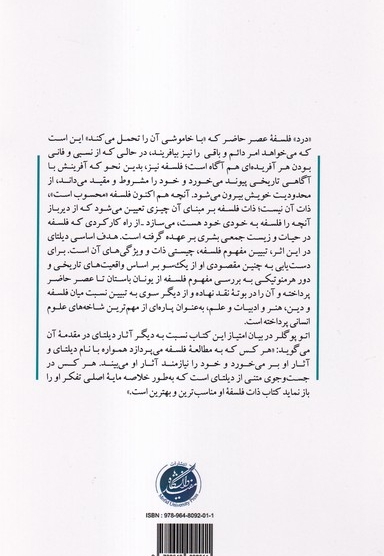 «درد» فلسفهٔ عصر حاضر که «با خاموشی آن را تحمل می‌کند» این است
که می‌خواهد امر دائم و باقی را نیز بیافریند، در حالی که از نسبی و فانی
بودن هر آفریده‌ای هم آگاه است؛ فلسفه نیز، بدین نحو که آفرینش با
آگاهی تاریخی پیوند می‌خورد و خود را مشروط و مقید می‌داند، از
محدودیت خویش بیرون می‌شود. آنچه هم‌اکنون فلسفه «محسوب است»،
ذات آن نیست؛ ذات فلسفه بر مبنای آن چیزی تعیین می‌شود که از دیرباز
آنچه را فلسفه به خودی خود هست، می‌سازد ـ از راه کارکردی که فلسفه
در حیات و زیست جمعی بشری بر عهده گرفته است. هدف اساسی دیلتای
در این اثر، تبیین مفهوم فلسفه، چیستی ذات و ویژگی‌های آن است. برای
دست‌یابی به چنین مقصودی او از یک‌سو بر اساس واقعیت‌های تاریخی و
دور هرمنوتیکی به بررسی مفهوم فلسفه از یونان باستان تا عصر حاضر
پرداخته و آن را در بوتهٔ نقد نهاده و از دیگر سوی به تبیین نسبت میان فلسفه
و دین، هنر و ادبیات و علم، به‌عنوان پاره‌ای از مهم‌ترین شاخه‌های علوم
انسانی پرداخته است.
اتو پوگلر در بیان امتیاز این کتاب نسبت به دیگر آثار دیلتای در مقدمهٔ آن
می‌گوید: «هر کس که به مطالعهٔ فلسفه می‌پردازد همواره با نام دیلتای و
آثار او بر می‌خورد و خود را نیازمند آثار او می‌بیند. هر کس در
جست‌وجوی متنی از دیلتای است که به‌طور خلاصه مایهٔ اصلی تفکر او را
باز نماید کتاب ذات فلسفهٔ او مناسب‌ترین و بهترین است.»
انتشارات
دانشگاه
مفید
Mofid University Press
ISBN : 978-964-8092-01-1